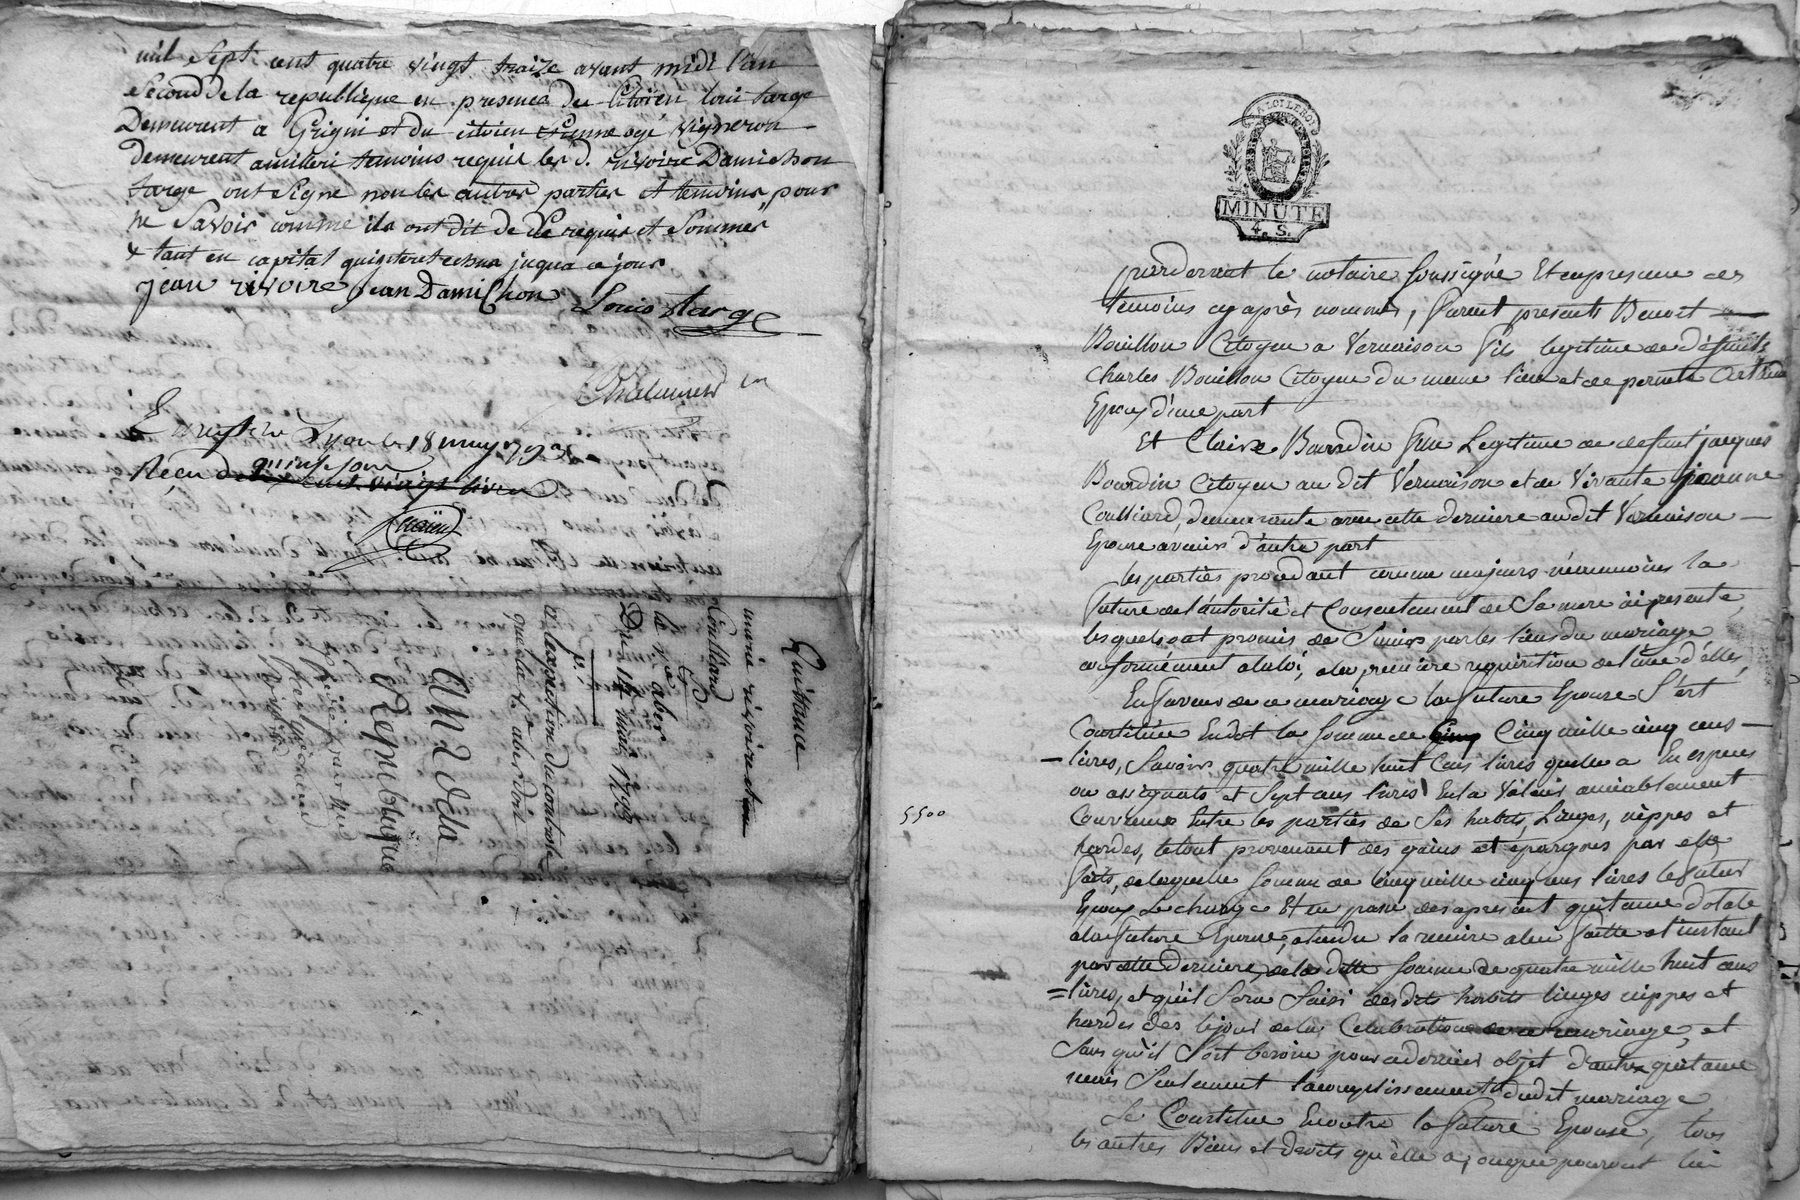 mil sept cent quatre vingt traize avant midi l'an
second de la republique en presence du citoien louis targe
Demeurent a Grigni et du citoien etienne ogé vigneron
demeurent a milleri temoins requis les d. rivoire Damichon
targe ont signe non les autres parties et temoins pour
ne savoir comme ils ont dit de ce requis et sommés
& tant en capital qu'interet echus juqua ce jour
jean rivoire jean DamiChon
Louis targe
Enregistré a Lyon le 18 may 1793
Reçu quinse sous
Quittance
marie rivoire et
Coulliard
a
la Ve abes
Du 14 mai 1793
P.
a lexception du controle
que la Ve abes doit
an 2 de la
Republique
A LOI LE ROI
MINUTE
4. S.
pardevant le notaire soussigné Et en presence des
temoins cy après nommés, furent presents Benoit
Bouillon Citoyen a Vernaison fils legitime de défunts
Charles Bouillon Citoyen du meme lieu et de
Epoux d'une part
Et Claire Bourdin fille Legitime de defunt jacques
Bourdin Citoyen au dit Vernaison et de Vivante jeanne
Coulliard demeurante avec cette derniere audit Vernaison
Epouse avenir d'autre part
les parties procedant comme majeurs néanmoins la
future de l'autorité et Consentement de Sa mere ici presente,
lesquels ont promis de S'unir par les liens du mariage
conformément a la loi, a la premiere requisition de l'une d'elles,
En faveur de ce mariage la future Epouse S'est
Constituée En dot la Somme de Cinq mille cinq cens
livres, Savoir quatre mille huit Cens livres quelle a En especes
ou assignats et Sept cens livres En la Valeur amiablement
5500
Convenue Entre les parties de Ses habits, Linges, nippes et
hardes, le tout provenant des gains et epargnes par elle
faits, de laquelle Somme de Cinq mille cinq cens livres le futur
Epoux Se charge Et en passe des apresent quittance dotale
a la future Epouse, attendu la remise a lui faitte a l'instant
par cette derniere, de la ditte Somme de quatre mille huit cens
livres, et qu'il Sera Saisi des dits habits linges nippes et
hardes des le jour de la Celebration de ce mariage, et
Sans qu'il Soit besoin pour ce dernier objet d'autre quitance
mais Seulement l'accomplissement dudit mariage
Se Constitue En outre la future Epouse, tous
les autres Biens et droits qu'elle a, ou que pourront lui